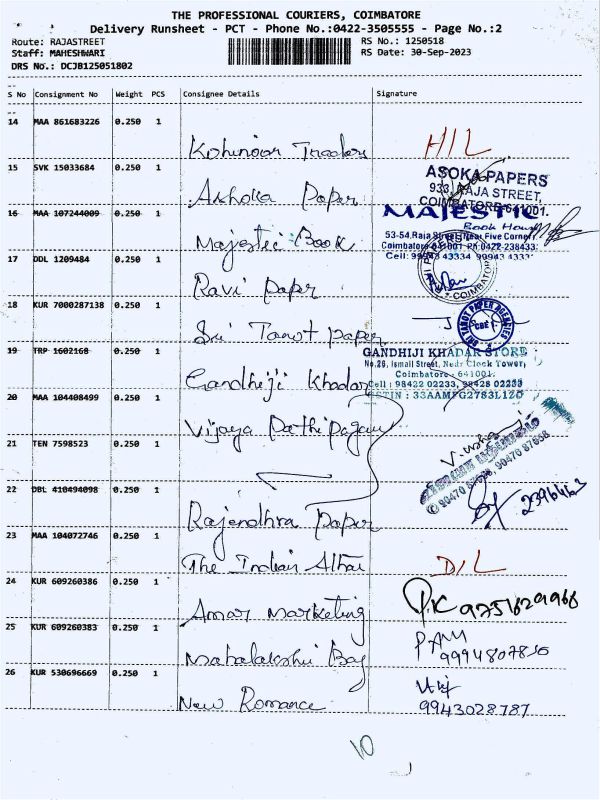 THE PROFESSIONAL COURIERS, COIMBATORE
Delivery Runsheet - PCT - Phone No.:0422-3505555 - Page No.:2
Route: RAJASTREET
RS No.: 1250518
Staff: MAHESHWARI
RS Date: 30-Sep-2023
DRS No.: DCJB125051802
S No Consignment No Weight PCS Consignee Details Signature
14 MAA 861683226 0.250 1 Kohinoor Traders H/L
15 SVK 15033684 0.250 1 Ashoka Paper
ASOKA PAPERS
933, RAJA STREET,
COIMBATORE-641001.
16 MAA 107244009 0.250 1 Majestic Book
MAJESTIC
Book House
53-54, Raja Street, Near Five Corner,
Coimbatore 641001 PH:0422-238433
Cell: 99943 43334, 99943 4333
17 DDL 1209484 0.250 1 Ravi Paper
COIMBATORE
18 KUR 7000287138 0.250 1 Sri Tarot Paper
SRI TAROT PAPER AGENCIES
CBE-1
19 TRP 1602168 0.250 1 Gandhiji Khadar
GANDHIJI KHADAR STORE
No.26, Ismail Street, Near Clock Tower,
Coimbatore - 641001.
Cell : 98422 02233, 98428 02233
GSTIN : 33AAMFG2783L1ZO
20 MAA 104408499 0.250 1 Vijaya Pathipagam
21 TEN 7598523 0.250 1
22 DBL 410494098 0.250 1 Rajendhra Paper
2396463
23 MAA 104072746 0.250 1 The Indian D/L
24 KUR 609260386 0.250 1 Amar Marketing
P.K 9751629968
25 KUR 609260383 0.250 1 Mahalakshmi Bag
PAM
9994807816
26 KUR 530696669 0.250 1 New Romance
9943028787
10